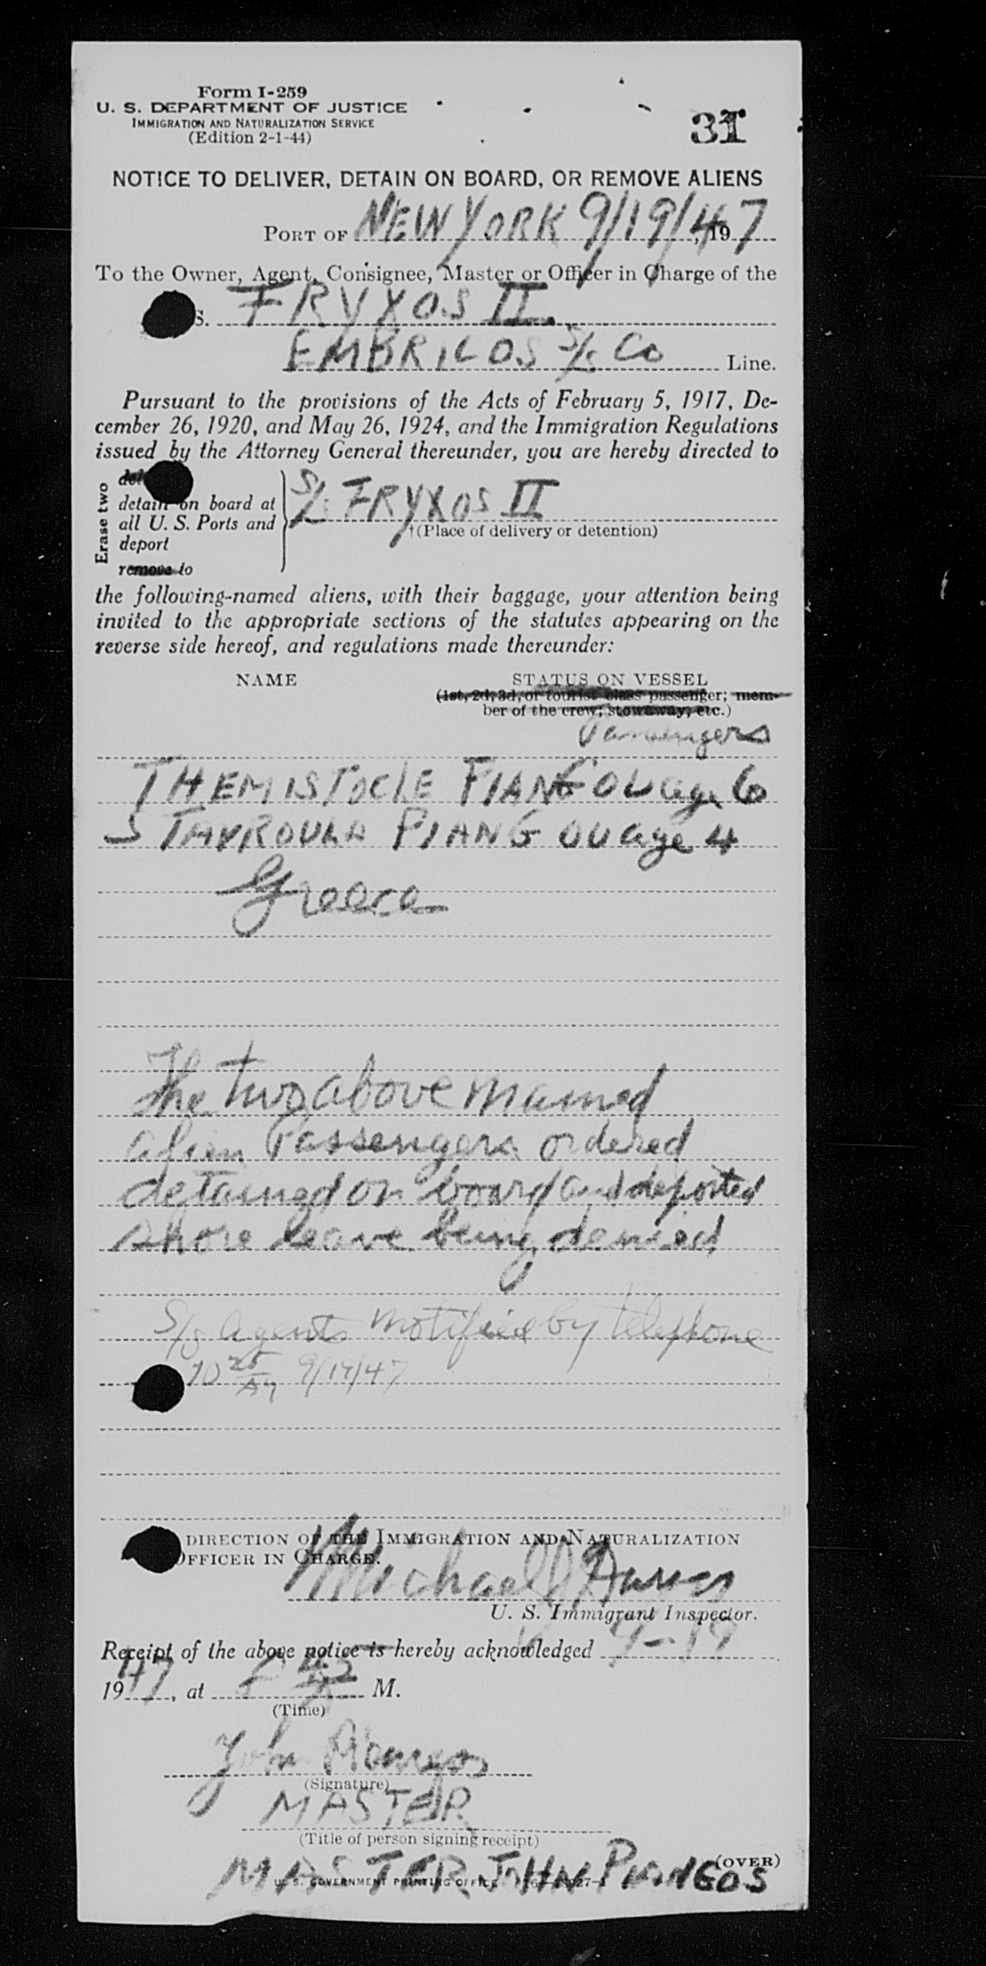 Form I-259
U. S. DEPARTMENT OF JUSTICE
IMMIGRATION AND NATURALIZATION SERVICE
(Edition 2-1-44)
31
NOTICE TO DELIVER, DETAIN ON BOARD, OR REMOVE ALIENS
PORT OF NEW YORK 9/19/47, 197
To the Owner, Agent, Consignee, Master or Officer in Charge of the
S. FRYXOS II
EMBRICOS S/S Co Line.
Pursuant to the provisions of the Acts of February 5, 1917, De-
cember 26, 1920, and May 26, 1924, and the Immigration Regulations
issued by the Attorney General thereunder, you are hereby directed to
Erase two
detain on board at
all U. S. Ports and
deport
remove to
S/S FRYXOS II
†(Place of delivery or detention)
the following-named aliens, with their baggage, your attention being
invited to the appropriate sections of the statutes appearing on the
reverse side hereof, and regulations made thereunder:
NAME STATUS ON VESSEL
(1st, 2d, 3d, or tourist class passenger; mem-
ber of the crew; stowaway, etc.)
Passengers
THEMISTOCLE PIANGOU age 6
STAVROULA PIANGOU age 4
Greece
The two above named
alien Passengers ordered
detained on board and deported
shore leave being denied
S/S agents notified by telephone
10 25 AM 9/19/47
DIRECTION OF THE IMMIGRATION AND NATURALIZATION
OFFICER IN CHARGE.
Michael J
U. S. Immigrant Inspector.
Receipt of the above notice is hereby acknowledged 9-19
1947, at M.
(Time)
John Piangos
(Signature)
MASTER
(Title of person signing receipt)
(OVER)
MASTER JOHN PIANGOS
U. S. GOVERNMENT PRINTING OFFICE